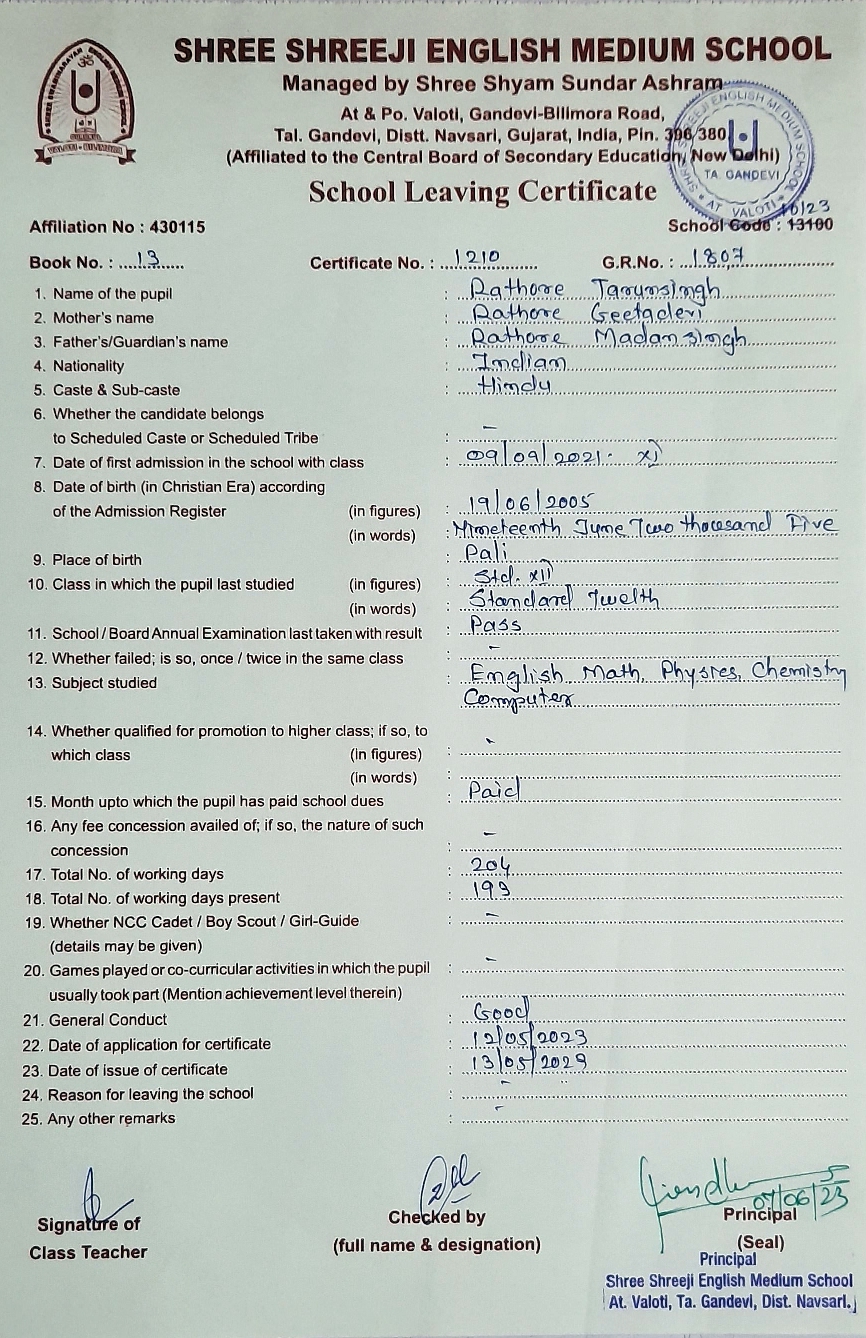 SHREE SHREEJI ENGLISH MEDIUM SCHOOL
Managed by Shree Shyam Sundar Ashram
At & Po. Valoti, Gandevi-Bilimora Road,
Tal. Gandevi, Distt. Navsari, Gujarat, India, Pin. 396 380
(Affiliated to the Central Board of Secondary Education, New Delhi)
SHREE SWAMINARAYAN ENGLISH MEDIUM SCHOOL
VALOTI - BILIMORA
SHREEJI ENGLISH MEDIUM SCHOOL
TA. GANDEVI
AT VALOTI
School Leaving Certificate
10/23
Affiliation No : 430115 School Code : 13100
Book No. : 13 Certificate No. : 1210 G.R.No. : 1807
1. Name of the pupil : Rathore Tarunsingh
2. Mother's name : Rathore Geetadevi
3. Father's/Guardian's name : Rathore Madansingh
4. Nationality : Indian
5. Caste & Sub-caste : Hindu
6. Whether the candidate belongs
to Scheduled Caste or Scheduled Tribe : -
7. Date of first admission in the school with class : 09/09/2021. XI
8. Date of birth (in Christian Era) according
of the Admission Register (in figures) : 19/06/2005
(in words) : Nineteenth June Two thousand Five
9. Place of birth : Pali
10. Class in which the pupil last studied (in figures) : Std. XII
(in words) : Standard Twelth
11. School / Board Annual Examination last taken with result : Pass
12. Whether failed; is so, once / twice in the same class : -
13. Subject studied : English, Math, Physics, Chemistry
Computer
14. Whether qualified for promotion to higher class; if so, to
which class (in figures) : -
(in words) :
15. Month upto which the pupil has paid school dues : Paid
16. Any fee concession availed of; if so, the nature of such
concession : -
17. Total No. of working days : 204
18. Total No. of working days present : 193
19. Whether NCC Cadet / Boy Scout / Girl-Guide : -
(details may be given)
20. Games played or co-curricular activities in which the pupil : -
usually took part (Mention achievement level therein)
21. General Conduct : Good
22. Date of application for certificate : 12/05/2023
23. Date of issue of certificate : 13/05/2023
24. Reason for leaving the school : -
25. Any other remarks : -
07/06/23
Signature of Checked by Principal
Class Teacher (full name & designation) (Seal)
Principal
Shree Shreeji English Medium School
At. Valoti, Ta. Gandevi, Dist. Navsari.